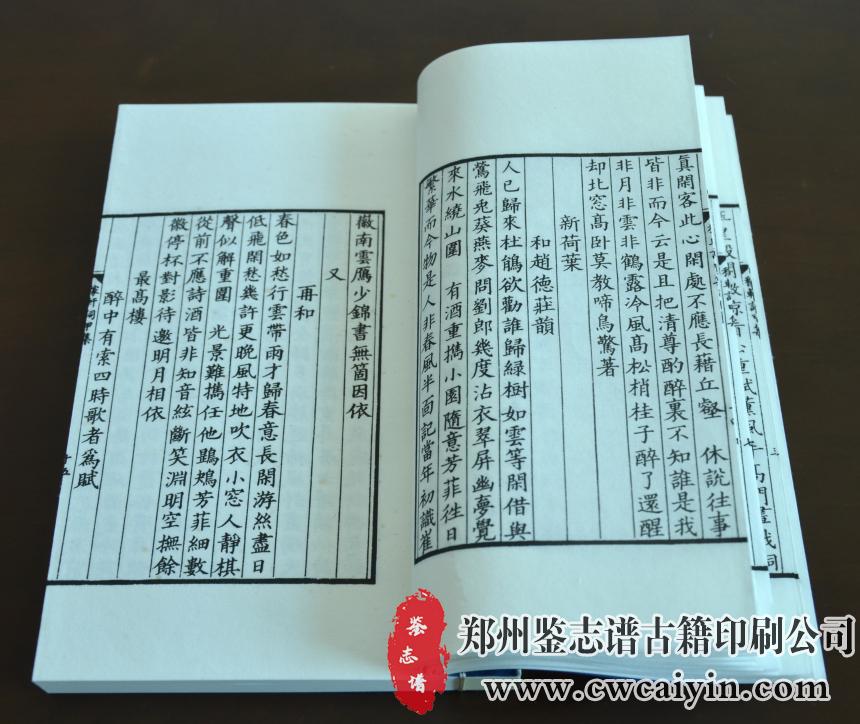 真閑客此心閑處不應長藉丘壑　休說往事
皆非而今云是且把清尊酌醉裏不知誰是我
非月非雲非鶴露泠風髙松梢桂子醉了還醒
却北窓髙卧莫教啼鳥驚著
新荷葉
和趙德莊韻
人已歸來杜鵑欲勸誰歸綠樹如雲等閑借與
鶯飛兎葵燕麥問劉郎幾度沾衣翠屏幽夢覺
來水繞山圍　有酒重携小園隨意芳菲徃日
繁華而今物是人非春風半面記當年初識崔
徽南雲鴈少錦書無箇因依
又
再和
春色如愁行雲帶雨才歸春意長閑游絲盡日
低飛閑愁幾許更晩風特地吹衣小窓人靜棋
聲似解重圍　光景難携任他鶗鴂芳菲細數
從前不應詩酒皆非知音絃斷笑淵明空撫餘
徽停杯對影待邀明月相依
最髙樓
醉中有索四時歌者爲賦
心
鉴志谱
郑州鉴志谱古籍印刷公司
www.cwcaiyin.com